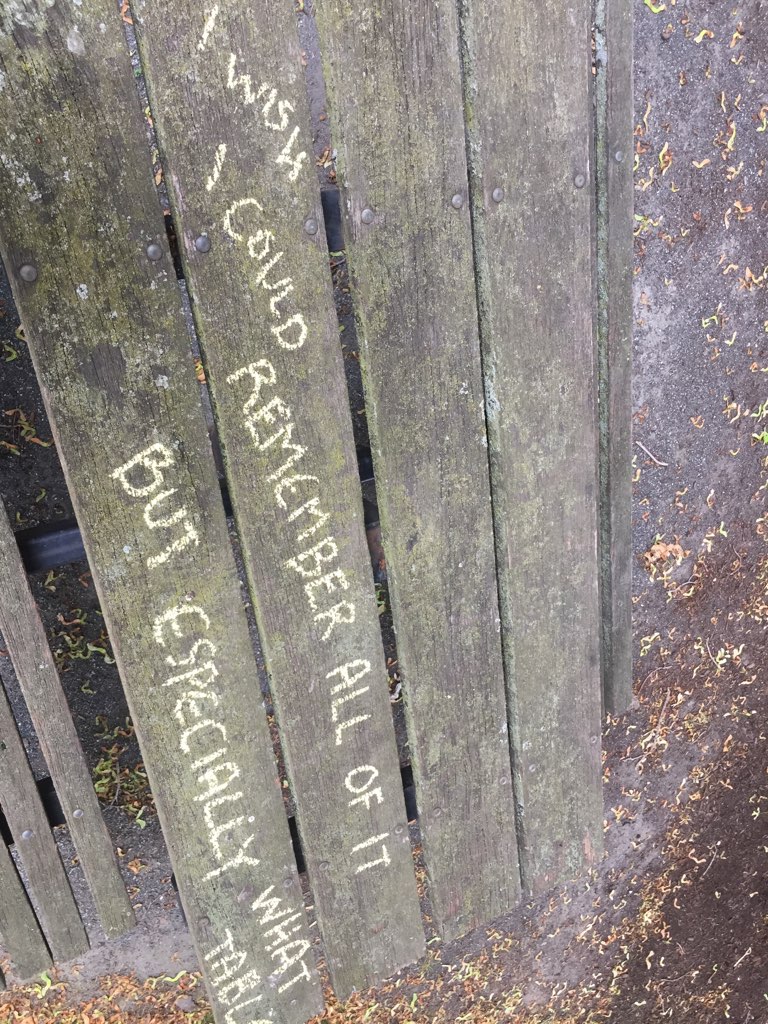 I WISH I COULD REMEMBER ALL OF IT
BUT ESPECIALLY WHAT